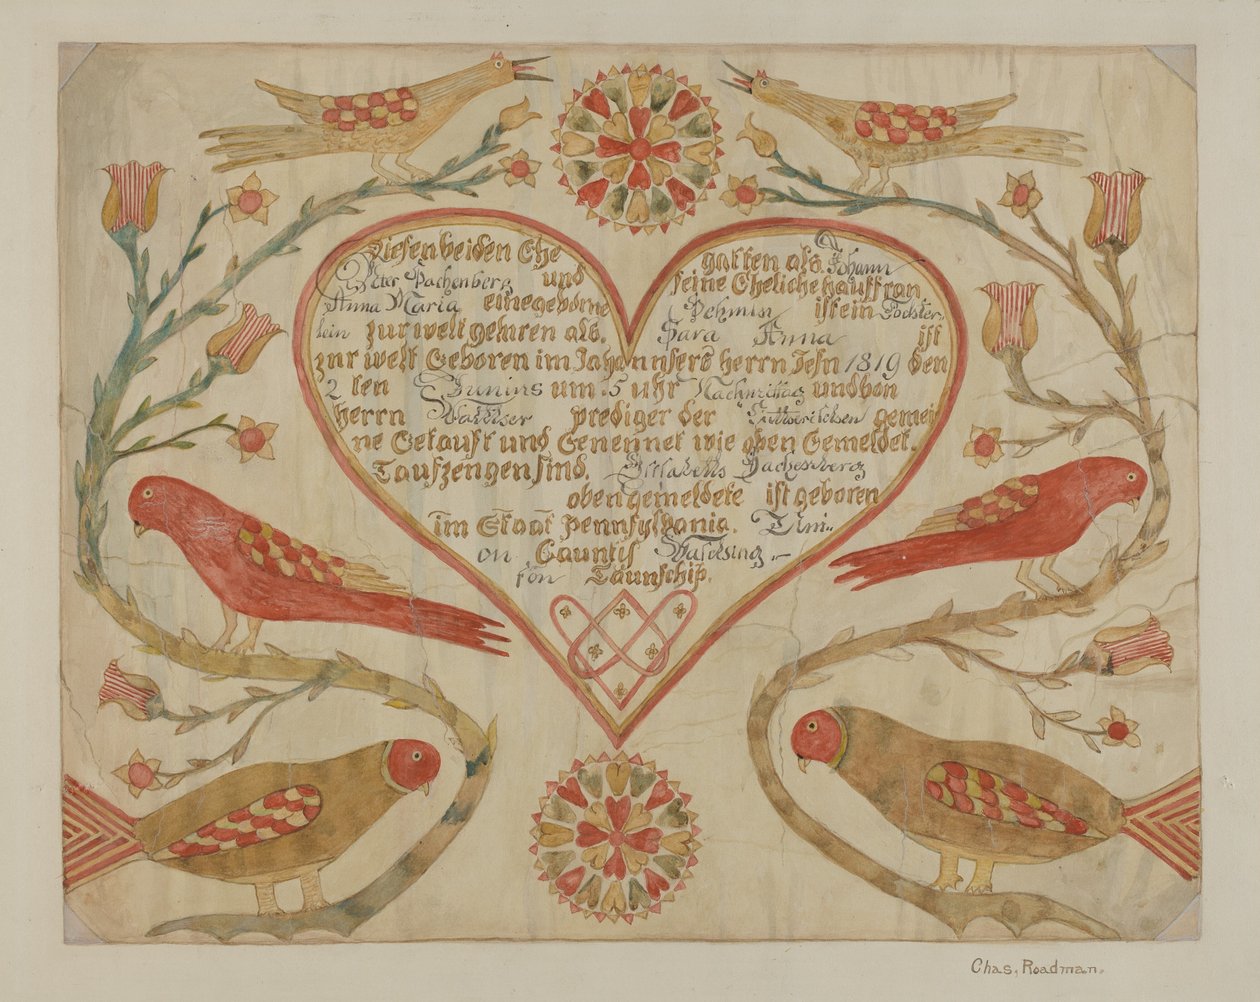 Diesen beiden Ehe gatten als Johann
Peter Pachenberg und seine Eheliche hauffrau
Anna Maria eine geborne Pehmin ist ein Tochter
lein zur welt gehren als. Sara Anna ist
zur welt Geboren im Jahr unsers herrn Jesu 1819 den
2 ten Junius um 5 uhr Nachmittag und von
herrn prediger der Lutterischen gemei
ne Getauft und Genennet wie oben Gemeldet.
Taufzeugen sind. Elisabeth Pachenberg
oben gemeldete ist geboren
im Staat Pennsylvania. Uni-
on Caunty
fon Taunschip.
Chas. Roadman.